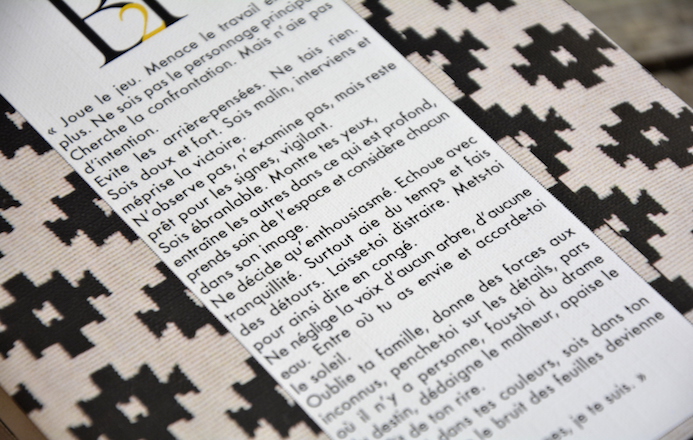 B
2
« Joue le jeu. Menace le travail
plus. Ne sois pas le personnage principal.
Cherche la confrontation. Mais n'aie pas
d'intention.
Evite les arrière-pensées. Ne tais rien.
Sois doux et fort. Sois malin, interviens et
méprise la victoire.
N'observe pas, n'examine pas, mais reste
prêt pour les signes, vigilant.
Sois ébranlable. Montre tes yeux,
entraîne les autres dans ce qui est profond,
prends soin de l'espace et considère chacun
dans son image.
Ne décide qu'enthousiasmé. Echoue avec
tranquillité. Surtout aie du temps et fais
des détours. Laisse-toi distraire. Mets-toi
pour ainsi dire en congé.
Ne néglige la voix d'aucun arbre, d'aucune
eau. Entre où tu as envie et accorde-toi
le soleil.
Oublie ta famille, donne des forces aux
inconnus, penche-toi sur les détails, pars
où il n'y a personne, fous-toi du drame
destin, dédaigne le malheur, apaise le
de ton rire.
dans tes couleurs, sois dans ton
le bruit des feuilles devienne
je te suis. »